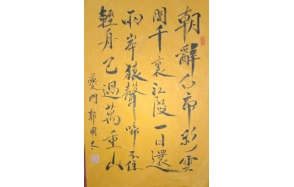 朝辭白帝彩雲
間千裏江陵一日還
兩岸猿聲啼不住
輕舟已過萬重山